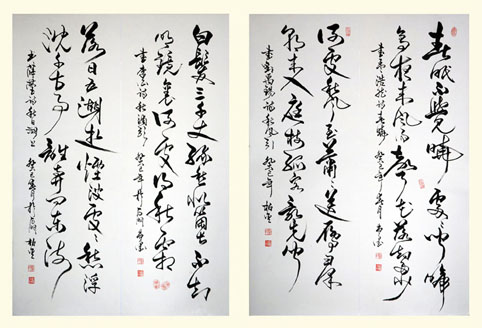 春眠不覺曉處〻聞啼
鳥夜來風雨聲花落知多少
書孟浩然詩春曉 癸巳年春月
何處秋風至蕭〻送雁群
朝來入庭樹孤客最先聞
書劉禹錫詩秋風引 癸巳年
白髮三千丈緣愁似個長不知
明鏡裏何處得秋霜
書李白詩秋浦歌 癸巳年
落日五湖遊煙波處〻愁浮
沈千古事誰與問東流
書薛瑩詩秋日湖上 癸巳春月於石門